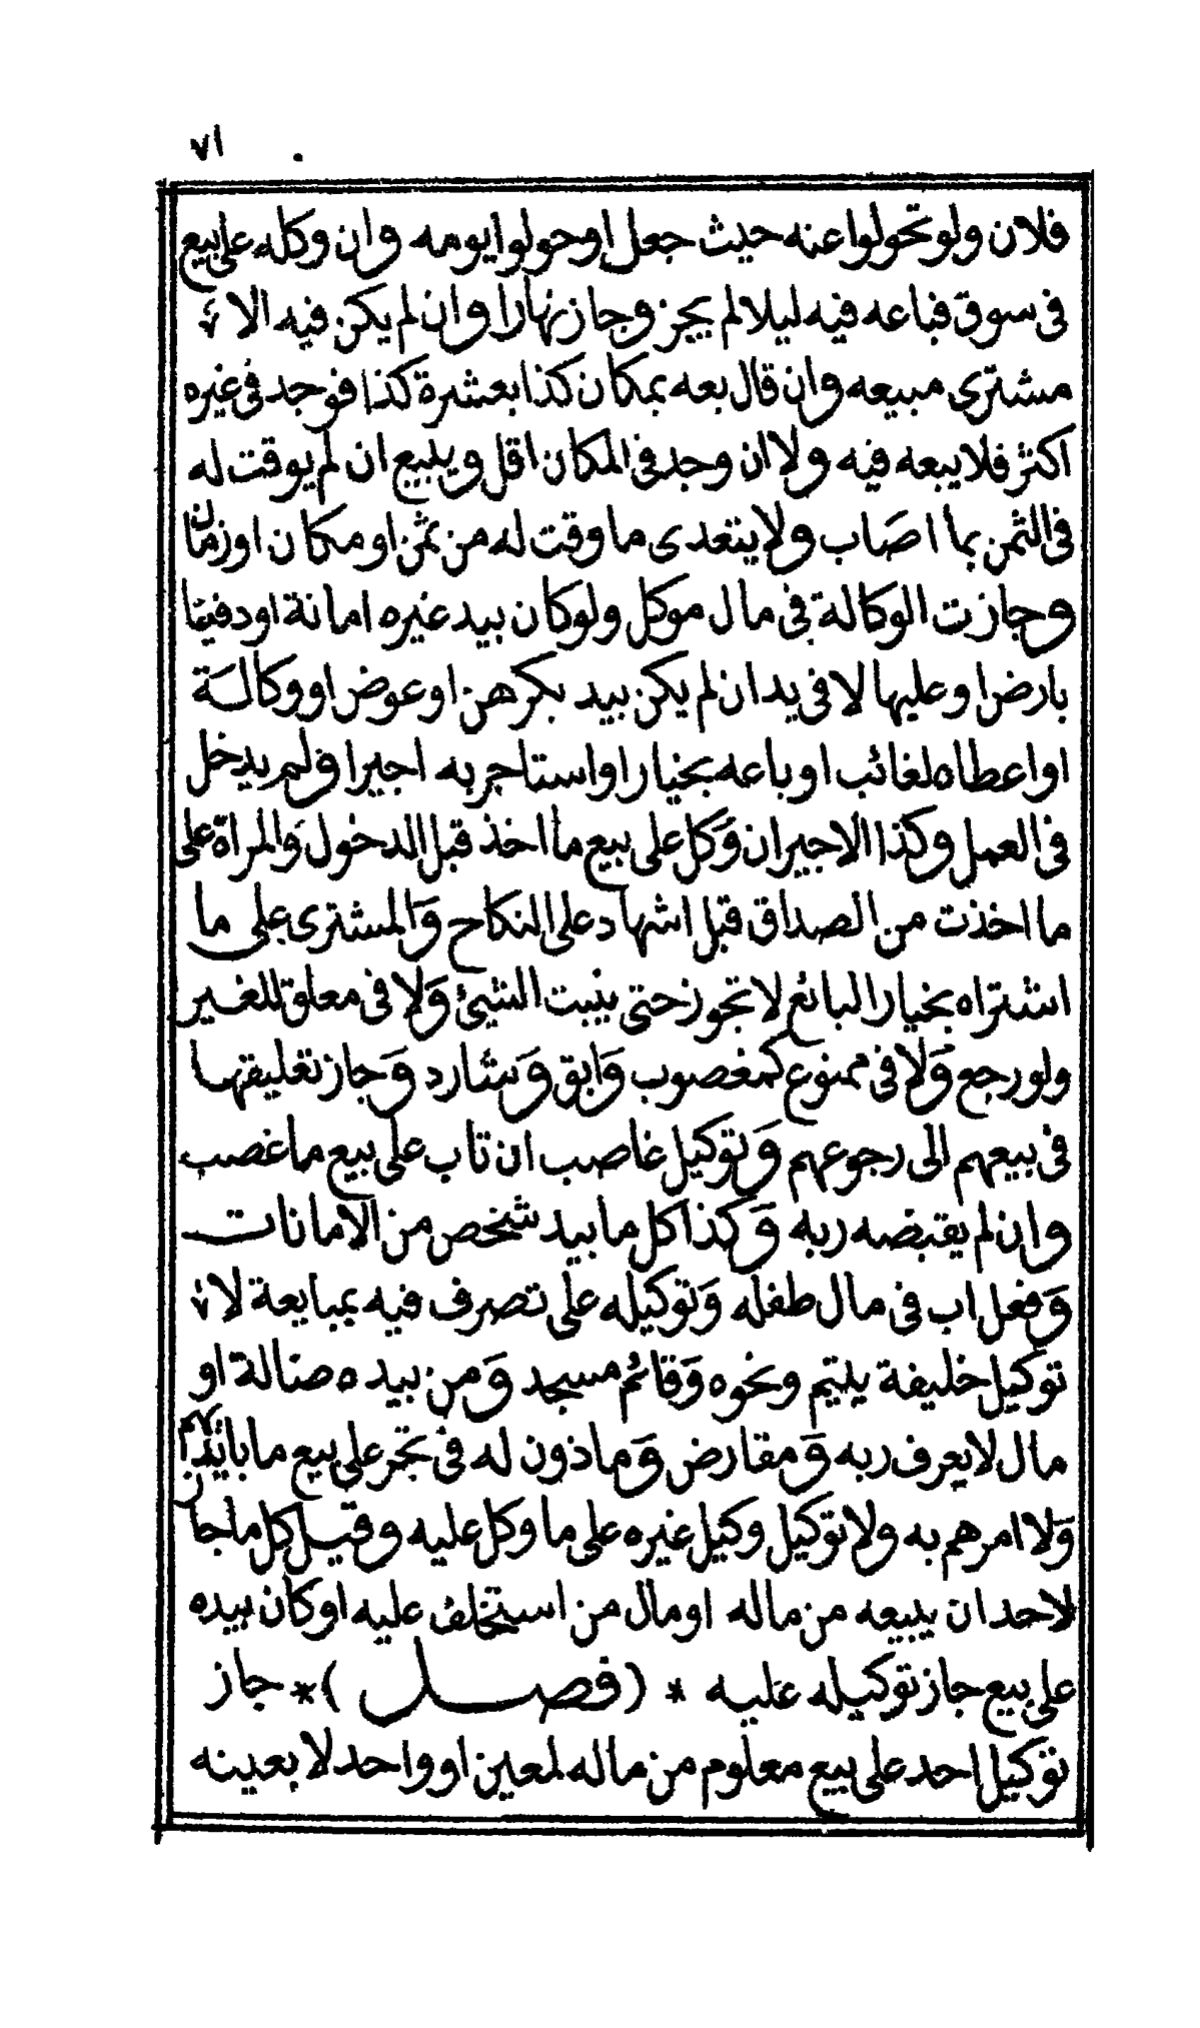 ٧١
فلان ولو تحولوا عنه حيث جعل او حولوا يومه وان وكله على بيع
فى سوق فباعه فيه ليلا لم يجز وجاز نهارا وان لم يكن فيه الا
مشترى مبيعه وان قال بعه بمكان كذا بعشرة كذا فوجد فى غيره
اكثر فلا يبعه فيه ولا ان وجد فى المكان اقل ويبيع ان لم يوقت له
فى الثمن بما اصاب ولا يتعدى ما وقت له من ثمن او مكان او زمان
وجازت الوكالة فى مال موكل ولو كان بيد غيره امانة او دفينا
بارض او عليها لا فى يد ان لم يكن بيد بكرهن او عوض او وكالة
او اعطاه لغائب او باعه بخيار او استاجر به اجيرا ولم يدخل
فى العمل وكذا الاجير ان وكل على بيع ما اخذ قبل الدخول والمراة على
ما اخذت من الصداق قبل اشهاد على النكاح والمشترى على ما
اشتراه بخيار البائع لا تجوز حتى يثبت الشيئ ولا فى معلق للغير
ولو رجع ولا فى ممنوع كمغصوب وابق وشارد وجاز تعليقها
فى بيعهم الى رجوعهم وتوكيل غاصب ان تاب على بيع ما غصب
وان لم يقبضه ربه وكذا كل ما بيد شخص من الامانات
وفعل اب فى مال طفله وتوكيله على تصرف فيه بمبايعة لا
توكيل خليفة يتيم ونحوه وقائم مسجد ومن بيده ضالة او
مال لا يعرف ربه ومقارض وماذون له فى تجر على بيع ما بايديهم
ولا امرهم به ولا توكيل وكيل غيره على ما وكل عليه وقيل كل ما جاز
لاحد ان يبيعه من ماله او مال من استخلف عليه او كان بيده
على بيع جاز توكيله عليه * (فصل) * جاز
توكيل احد على بيع معلوم من ماله لمعين او واحد لا بعينه